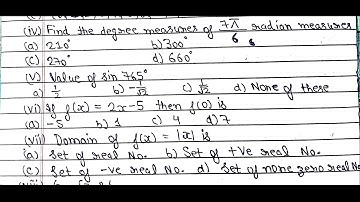 (iv) Find the degree measures of 7π/6 radian measures
(a) 210° b) 300°
(c) 270° d) 660°
(v) Value of sin 765°
a) 1/2 b) -1/√2 c) 1/√2 d) None of these
(vi) If f(x) = 2x-5 then f(0) is
(a) -5 b) 1 c) 4 d) 7
(vii) Domain of f(x) = |x| is
(a) Set of real No. b) Set of +Ve real No.
(c) Set of -ve real No. d) Set of none zero real No